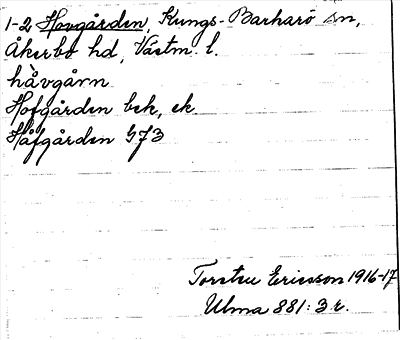 1-2 Hovgården, Kungs-Barkarö sn,
Åkerbo hd, Västm. l.
håvgårn
Hofgården bek, ek.
Håfgården GJ3
Torsten Ericsson 1916-17
Ulma 881:3 s.